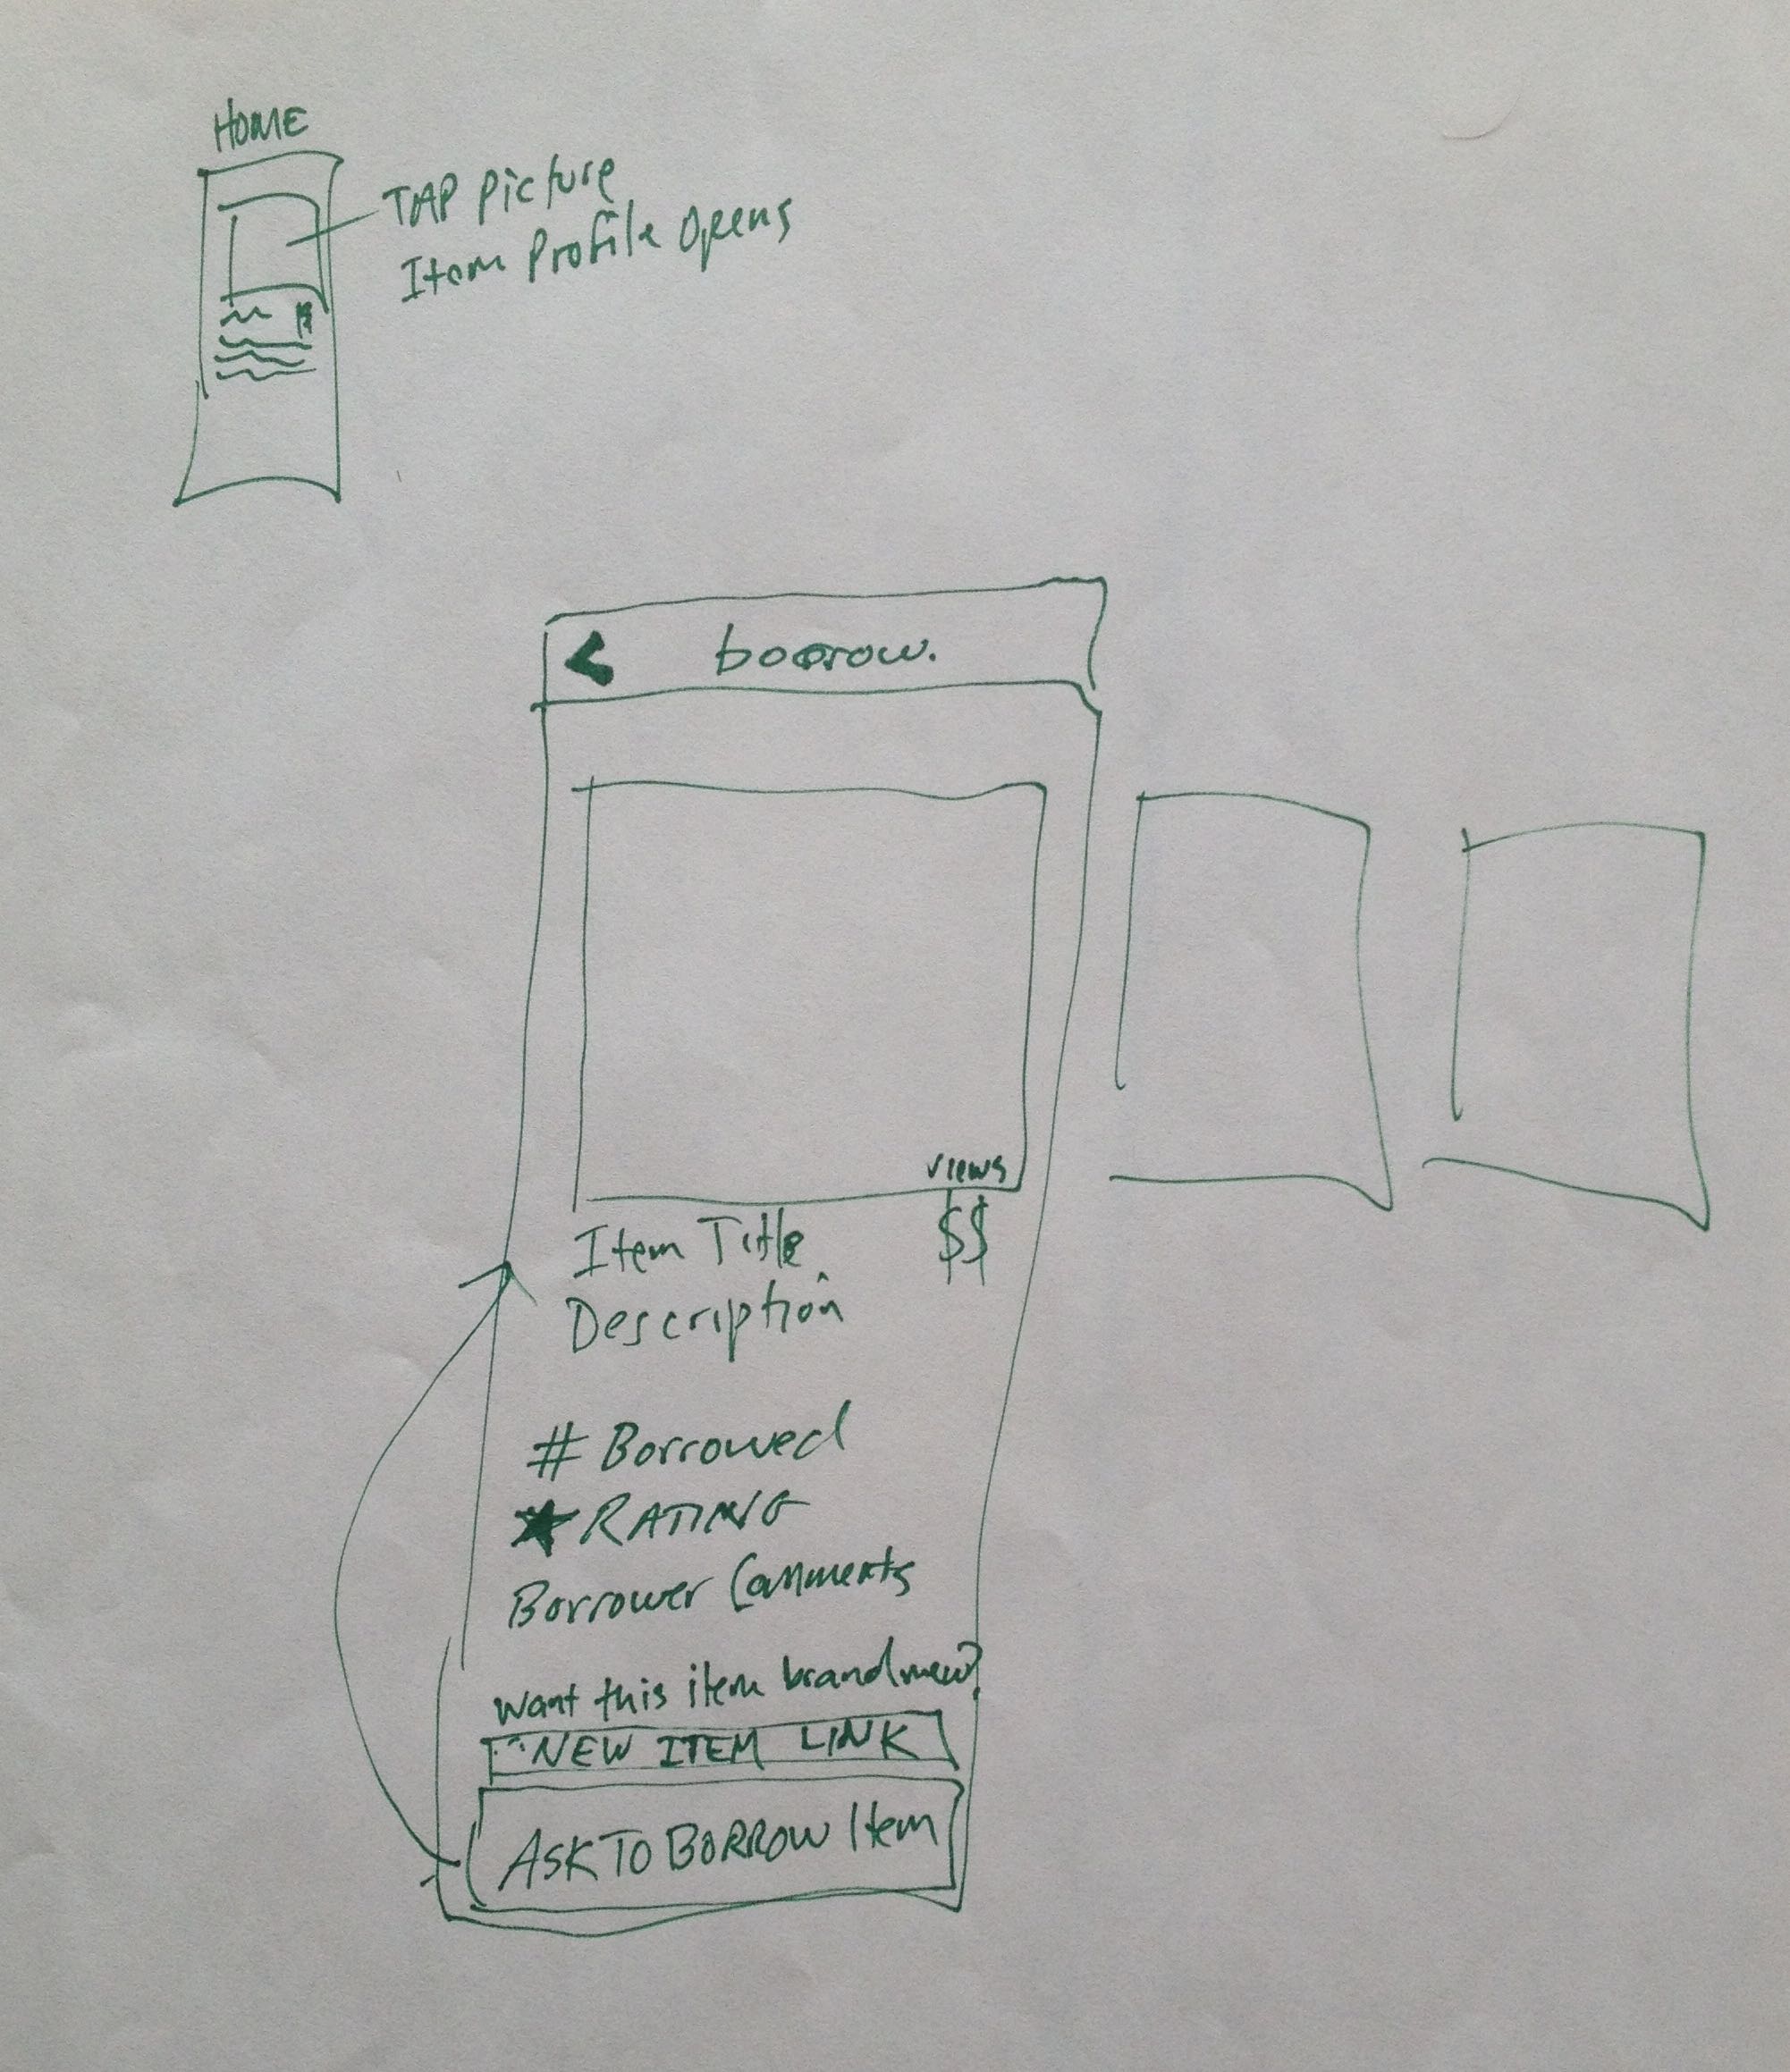 HOME
TAP picture
Item Profile opens
borrow.
views
Item Title $$
Description
# Borrowed
★ RATING
Borrower Comments
want this item brand new?
NEW ITEM LINK
ASK TO BORROW Item